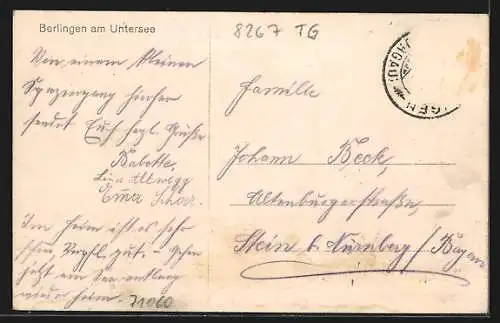 Berlingen am Untersee
8267 TG
Von einem kleinen
Spaziergang hierher
sendet Euch hrzl. Grüße
Babette
Lina Allwegg
Emma Schar.
Im Heim ist es sehr
schön, Verpfl. gut. – Gehen
jetzt am See entlang
wieder heim.
71060
Familie
Johann Beck,
Altenburgerstraße,
Stein b. Nürnberg / Bayern